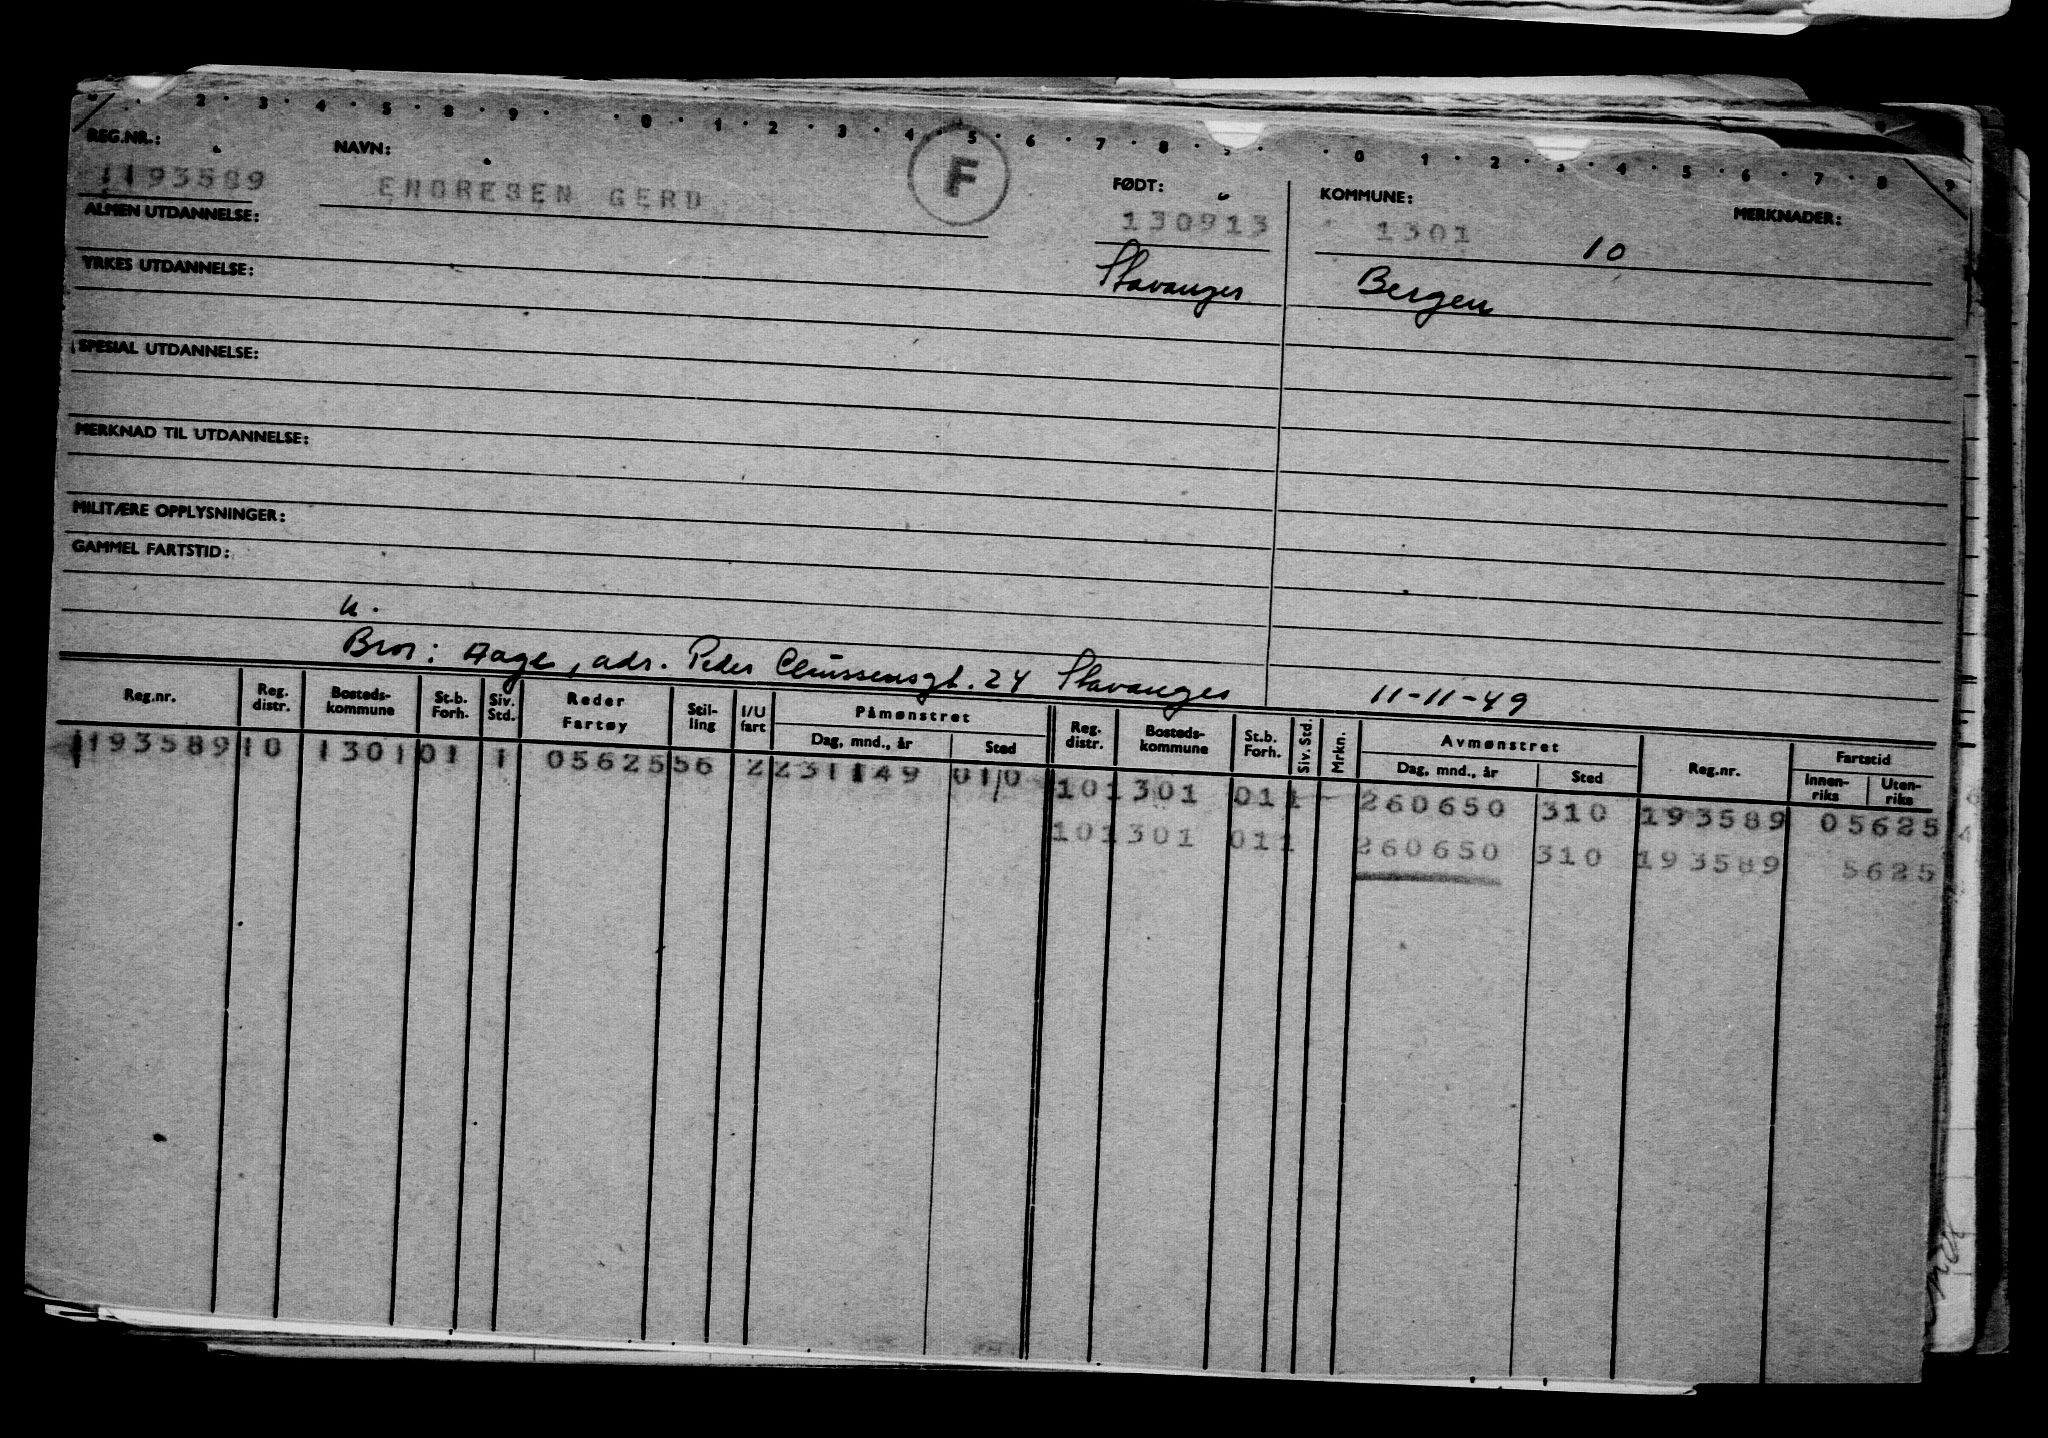 2 · 3 · 4 · 5 · 8 · 9 · · 0 · 1 · 2 · 3 · 4 · 5 · 6 · 7 · 8 · · 0 · 1 · 2 · 3 · 4 · 5 · 6 · 7 · 8 · 9
REG.NR.: NAVN: F FØDT: KOMMUNE: MERKNADER:
1193589 ENDRESEN GERD 130913 1301 10
ALMEN UTDANNELSE:
Stavanger Bergen
YRKES UTDANNELSE:
SPESIAL UTDANNELSE:
MERKNAD TIL UTDANNELSE:
MILITÆRE OPPLYSNINGER:
GAMMEL FARTSTID:
u.
Bror: Aage, adr. Peder Claussensgt. 24 Stavanger 11-11-49
Reg.nr. Reg. distr. Bosteds-kommune St.b. Forh. Siv. Std. Reder Fartøy Stil-ling I/U fart Påmønstret Dag, mnd., år Sted Reg. distr. Bosteds-kommune St.b. Forh. Siv. Std. Mrkn. Avmønstret Dag, mnd., år Sted Reg.nr. Fartstid Innen-riks Uten-riks
1193589 10 1301 01 1 05625 56 2 231149 010 10 1301 01 1 260650 310 193589 05625
10 1301 01 1 260650 310 193589 5625